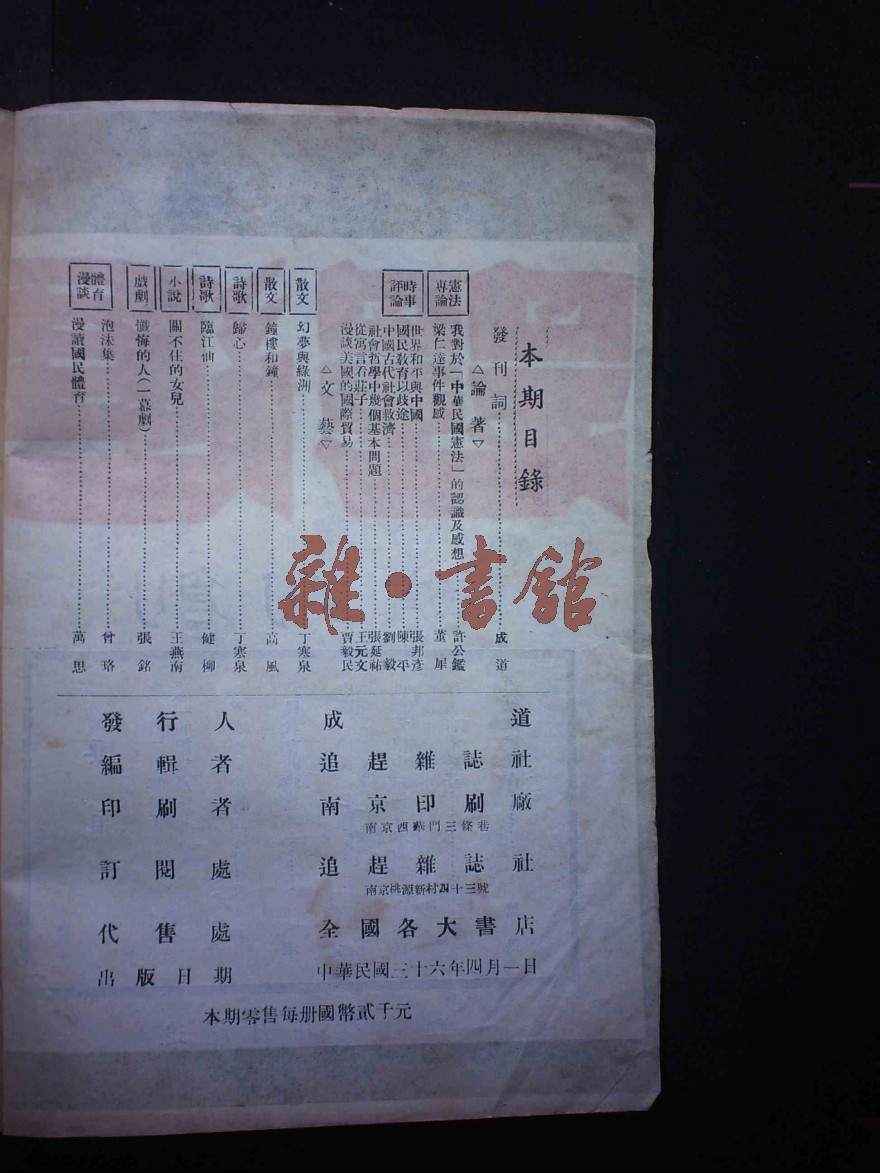 本期目錄
發刊詞……成道
△論著▽
憲法專論
我對於「中華民國憲法」的認識及感想……許公鑑
梁仁達事件觀感……董犀
時事評論
世界和平與中國……張邦彥
國民教育以歧途……陳平
中國古代社會救濟……劉毅
社會哲學中幾個基本問題……張延祐
從寓言看莊子……王元文
漫談美國的國際貿易……賈毅民
△文藝▽
散文
幻夢與綠洲……丁寒泉
散文
鐘樓和鐘……高風
詩歌
歸心……丁寒泉
詩歌
臨江仙……健柳
小說
關不住的女兒……王燕南
戲劇
懺悔的人(一幕劇)……張銘
泡沫集……曾珞
體育漫談
漫讀國民體育……萬思
發行人 成道
編輯者 追趕雜誌社
印刷者 南京印刷廠
南京西華門三條巷
訂閱處 追趕雜誌社
南京桃源新村四十三號
代售處 全國各大書店
出版日期 中華民國三十六年四月一日
本期零售每册國幣貳千元
雜·書館